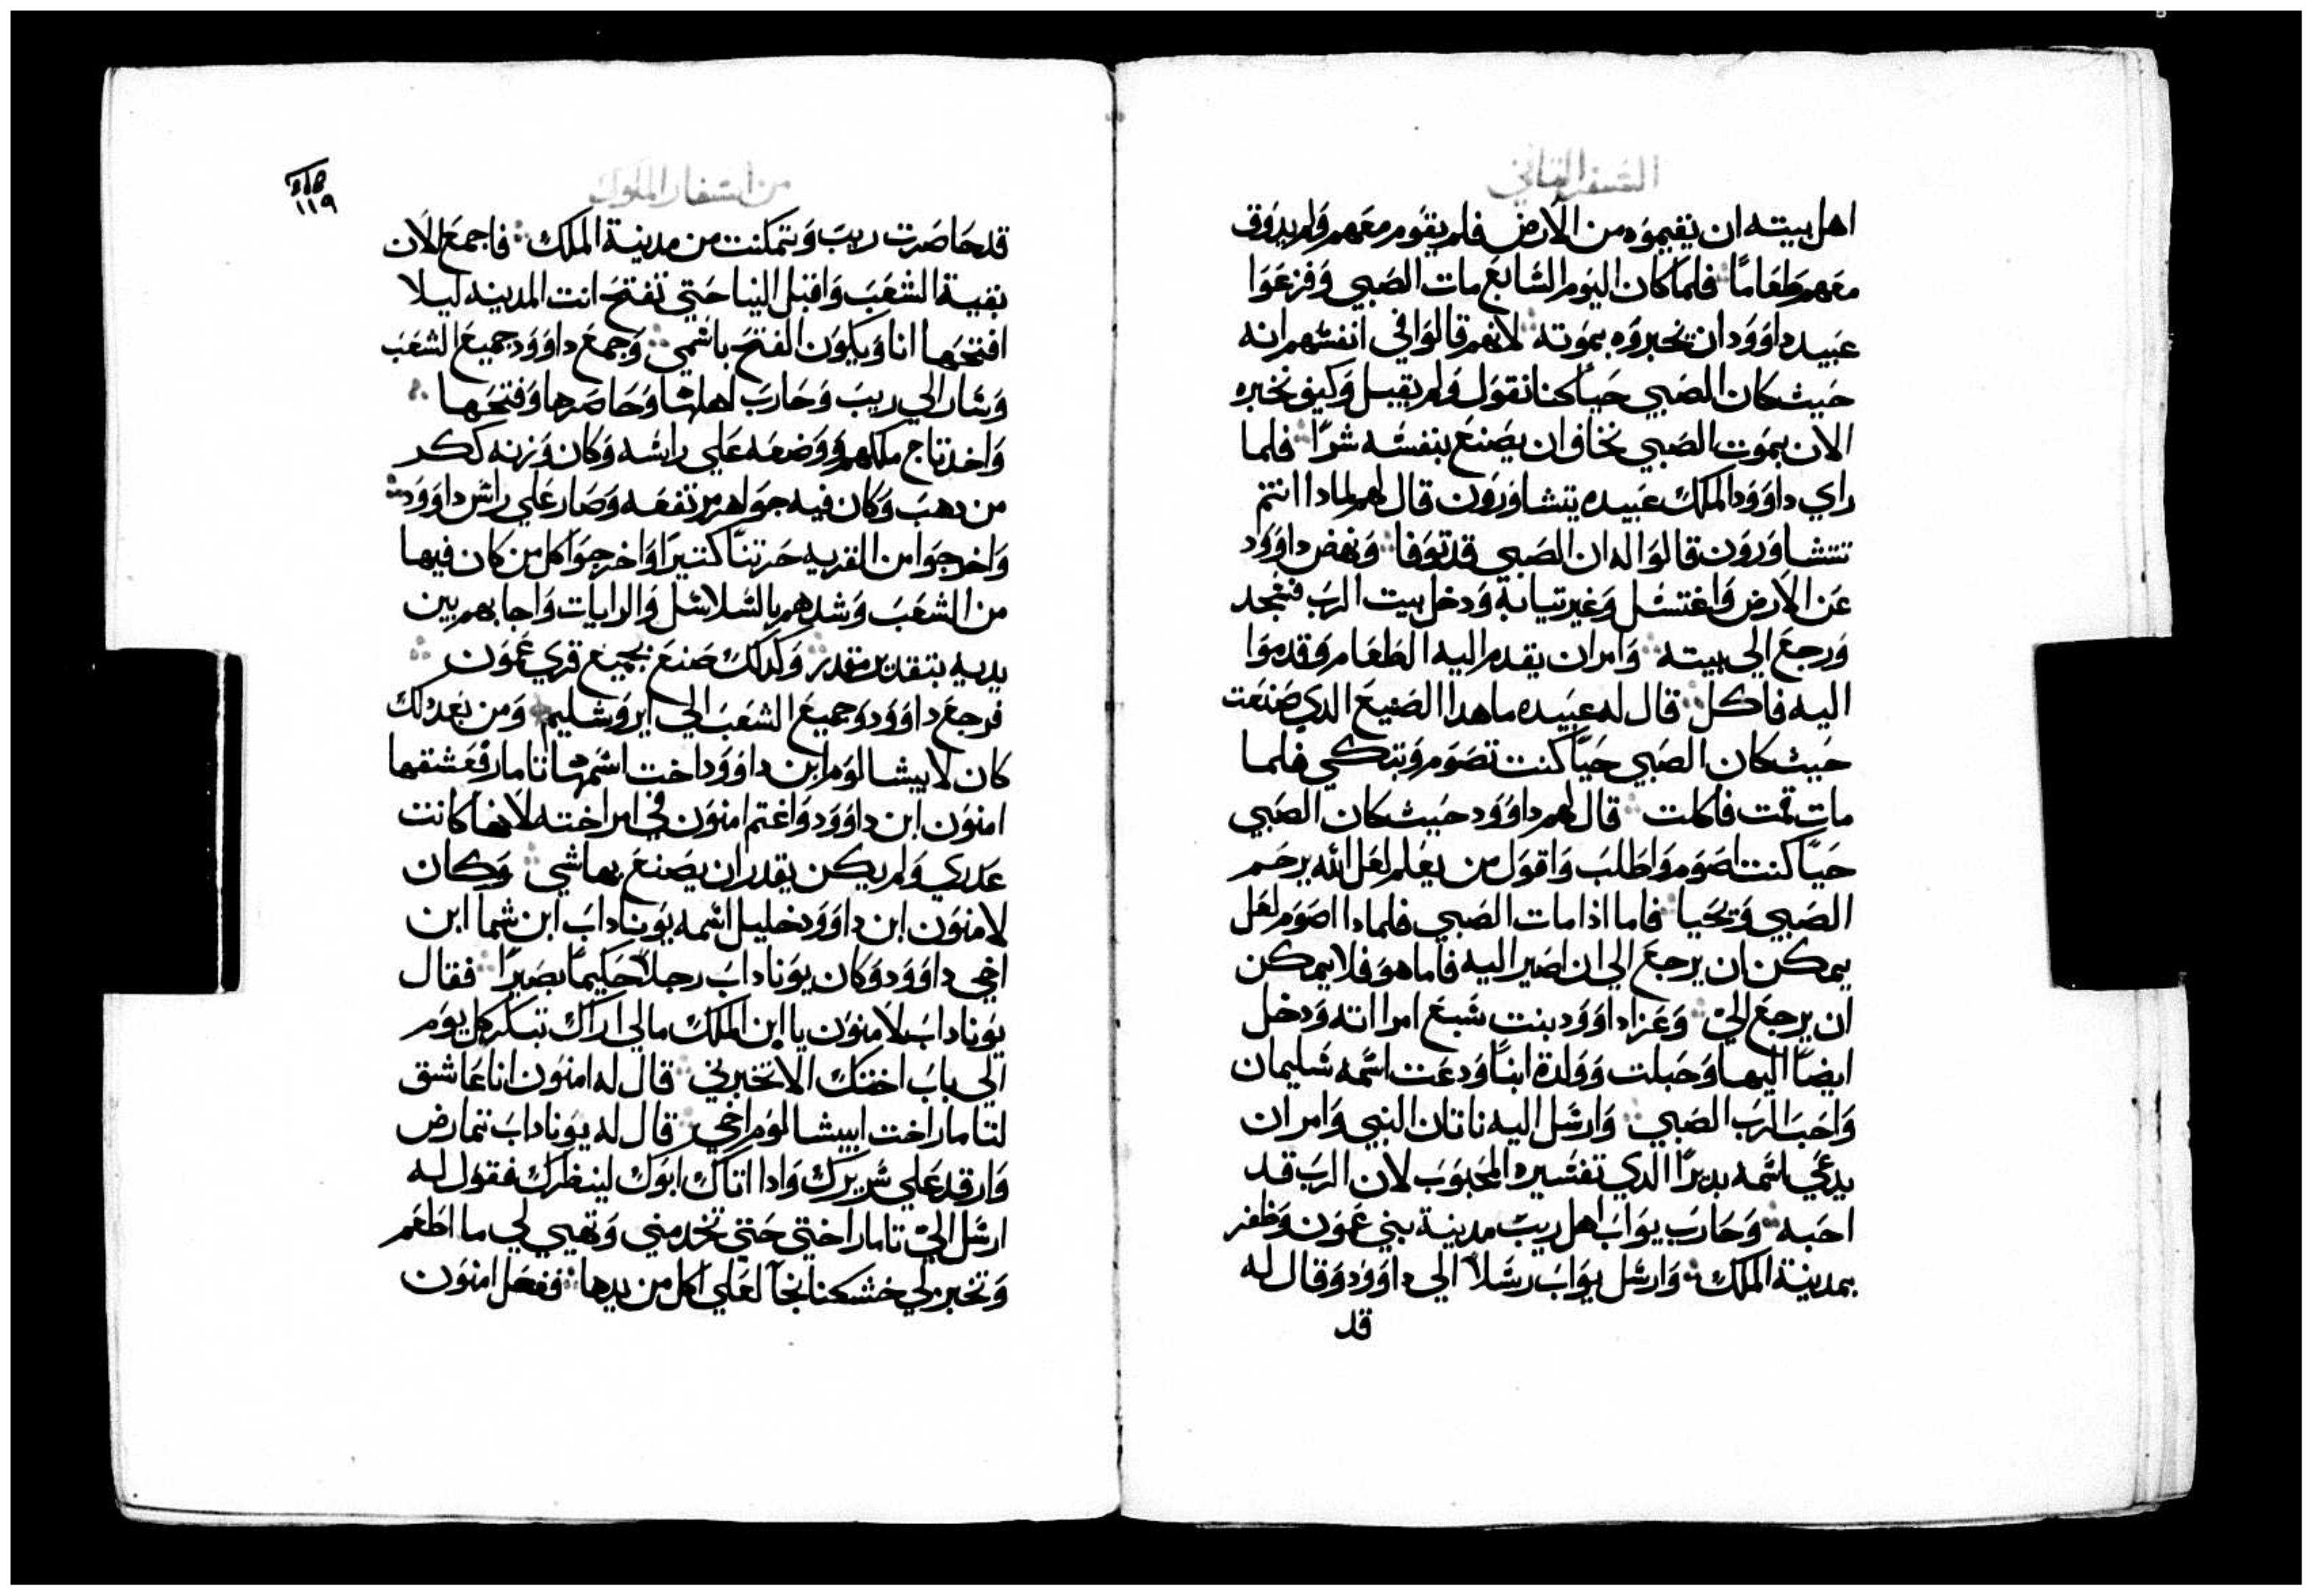 السفر الثاني
اهل بيته ان يقيموه من الارض فلم يقوم معهم ولم يدوق
معهم طعامًا فلما كان اليوم السابع مات الصبي وفزعوا
عبيد داوود ان يخبروه بموته لانهم قالوا في انفسهم انه
حيث كان الصبي حيًا كنا نقول ولم يقبل وكيف نخبره
الان بموت الصبي نخاف ان يصنع بنفسه شرًا فلما
راي داوود الملك عبيده يتشاورون قال لهم لمادا انتم
تتشاورون قالوا له ان الصبي قد توفا ونهض داوود
عن الارض واغتسل وغير تيابه ودخل بيت الرب فسجد
ورجع الي بيته وامر ان يقدم اليه الطعام وقدموا
اليه فاكل قال له عبيده ما هدا الصنيع الدي صنعت
حيث كان الصبي حيًا كنت تصوم وتبكي فلما
مات قمت فاكلت قال لهم داوود حيث كان الصبي
حيًا كنت اصوم واطلب واقول من يعلم لعل الله يرحم
الصبي ويحيا فاما اذا مات الصبي فلمادا اصوم لعل
يمكن ان يرجع الي ان اصير اليه فاما هو فلا يمكن
ان يرجع اليّ وعزا داوود بنت شبع امراته ودخل
ايضًا اليها وحبلت وولدة ابنًا ودعت اسمه سليمان
واحب الرب الصبي وارسل اليه ناتان النبي وامر ان
يدعي اسمه يديرًا الدي تفسيره المحبوب لان الرب قد
احبه وحارب يواب اهل ريب مدينة بني عمون وظفر
بمدينة الملك وارسل يواب رسلاً الي داوود وقال له
قد
من اسفار الملوك
١١٩
قد حاصرت ريب وتمكنت من مدينة الملك فاجمع الان
بقية الشعب واقبل الينا حتي تفتح انت المدينه ليلا
افتحها انا ويكون الفتح باسمي وجمع داوود جميع الشعب
وسار الي ريب وحارب اهلها وحاصرها وفتحها
واخد تاج ملكهم ووضعه علي راسه وكان وزنه ككر
من دهب وكان فيه جواهر مرتفعه وصار علي راس داوود
واخرجوا من القريه حرتنًا كتيرًا واخرجوا كل من كان فيها
من الشعب وشدهم بالسلاسل والرايات واجابهم بين
يديه بتقدير مقدر وكدلك صنع بجميع قري عمون
فرجع داوود وجميع الشعب الي ايروشليم ومن بعد دلك
كان لابيشالوم ابن داوود اخت اسمها تامار فعشقها
امنون ابن داوود واغتم امنون في امر اخته لانها كانت
عدري ولم يكن يقدر ان يصنع بها شي وكان
لامنون ابن داوود خليل اسمه يوناداب ابن شما ابن
اخي داوود وكان يوناداب رجلاً حكيمًا بصيرًا فقال
يوناداب لامنون يا ابن الملك مالي اراك تبكر كل يوم
الي باب اختك الا تخبرني قال له امنون انا عاشق
لتامار اخت ابيشالوم اخي قال له يوناداب تمارض
وارقد علي سريرك وادا اتاك ابوك لينظرك فقول له
ارسل اليّ تامار اختي حتي تخدمني وتهيي لي ما اطعم
وتخبز لي خشكنانجًا لعلي اكل من يدها ففعل امنون